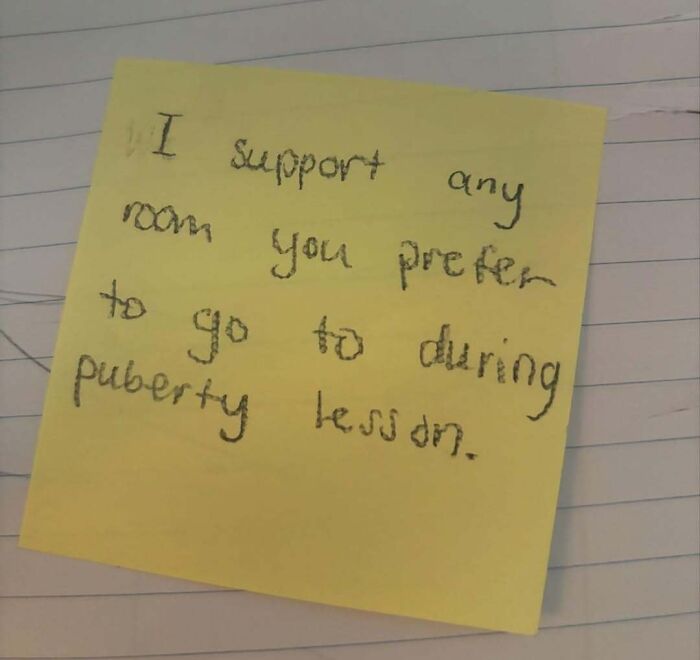 I support any
room you prefer
to go to during
puberty lesson.